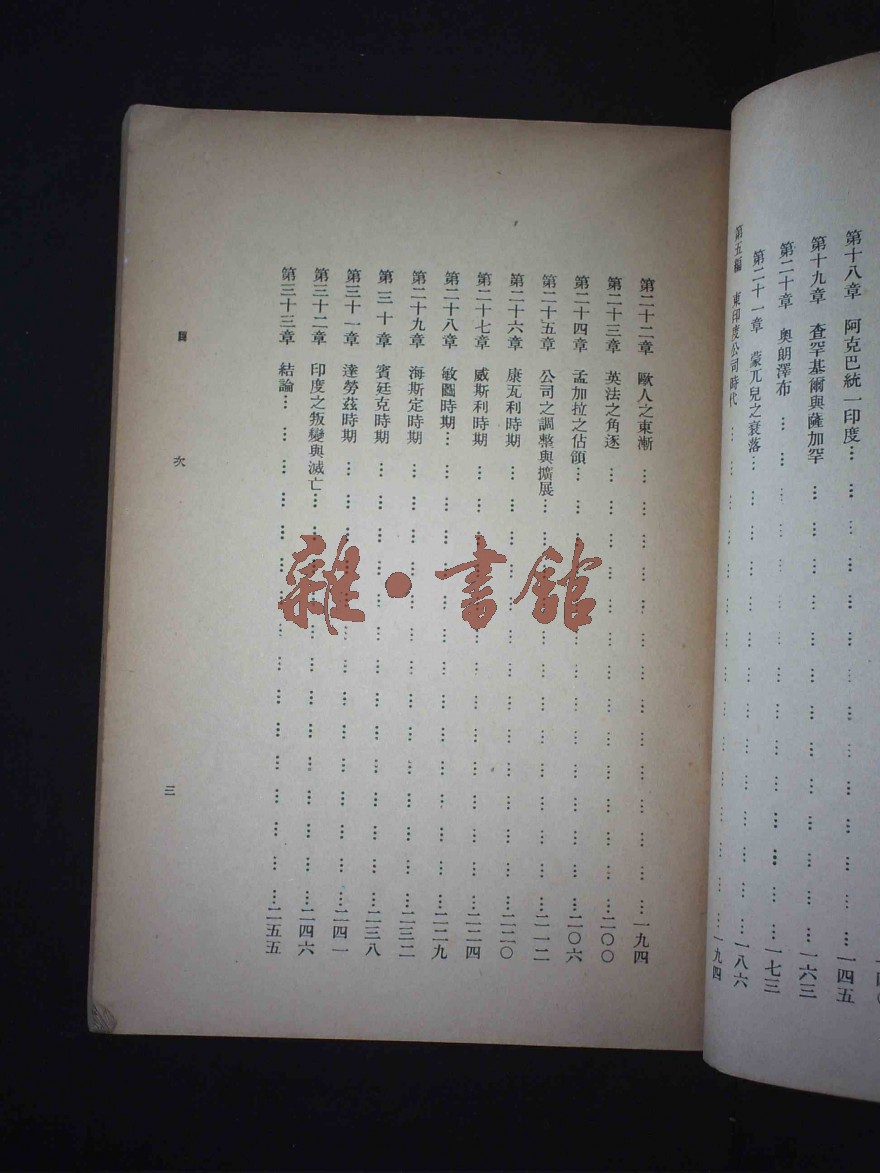 第十八章 阿克巴統一印度……一四五
第十九章 查罕基爾與薩加罕……一六三
第二十章 奧朗澤布……一七三
第二十一章 蒙兀兒之衰落……一八六
第五編 東印度公司時代……一九四
第二十二章 歐人之東漸……一九四
第二十三章 英法之角逐……二〇〇
第二十四章 孟加拉之佔領……二〇六
第二十五章 公司之調整與擴展……二一二
第二十六章 康瓦利時期……二二〇
第二十七章 威斯利時期……二二四
第二十八章 敏圖時期……二二九
第二十九章 海斯定時期……二三二
第三十章 賓廷克時期……二三八
第三十一章 達勞茲時期……二四一
第三十二章 印度之叛變與滅亡……二四六
第三十三章 結論……二五五
次
三
雜·書館